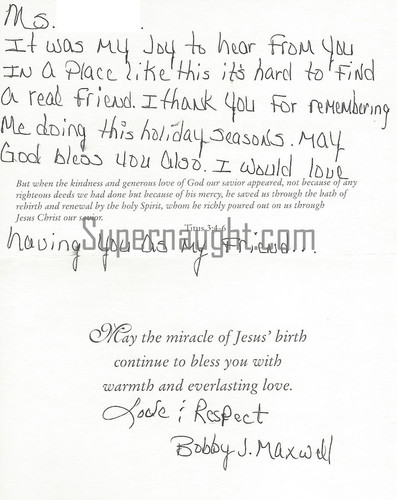 Ms.
It was My Joy to hear From you
IN a Place like this it's hard to Find
a real Friend. I thank you For remembering
Me doing this holiday seasons. May
God bless you also. I would love
But when the kindness and generous love of God our savior appeared, not because of any
righteous deeds we had done but because of his mercy, he saved us through the bath of
rebirth and renewal by the holy Spirit, whom he richly poured out on us through
Jesus Christ our savior.
Titus 3:4-6
Supernaught.com
having you as My Friend...
May the miracle of Jesus' birth
continue to bless you with
warmth and everlasting love.
Love & Respect
Bobby J. Maxwell